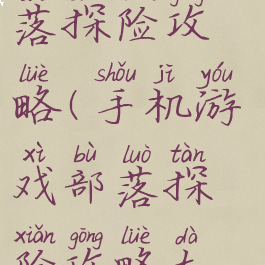 落探险攻
lüè shǒu jī yóu
略(手机游
xì bù luò tàn
戏部落探
xiǎn gōng lüè dà
险攻略大